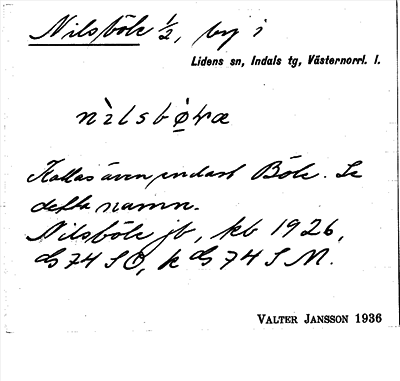 Nilsböle ½, by i
Lidens sn, Indals tg, Västernorrl. l.
Kallas även endast Böle. Se
detta namn.
Nilsböle jb, kb 1926,
GS 74 SO, k GS 74 SM.
VALTER JANSSON 1936